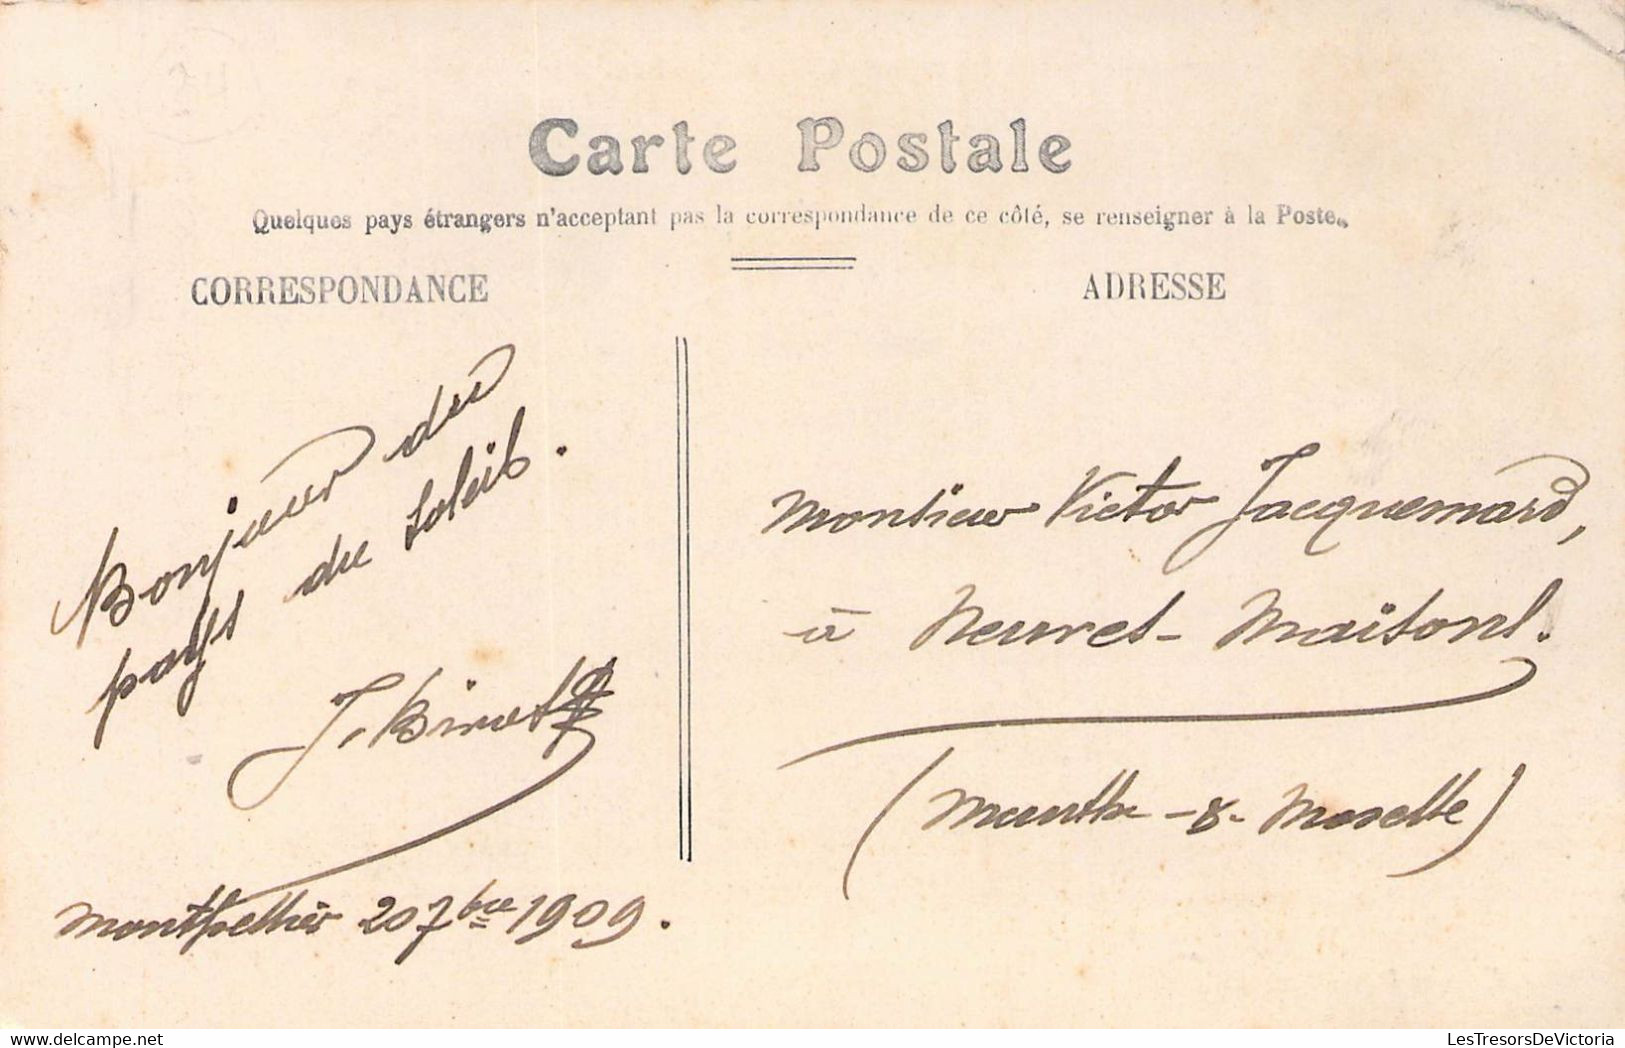 Carte Postale
Quelques pays étrangers n'acceptant pas la correspondance de ce côté, se renseigner à la Poste.
CORRESPONDANCE
Bonjour du
pays du soleil.
J. Binet
Montpellier 20 7bre 1909.
ADRESSE
Monsieur Victor Jacquemard,
à Neuves-Maisons.
(Meurthe-&-Moselle)
LesTresorsDeVictoria